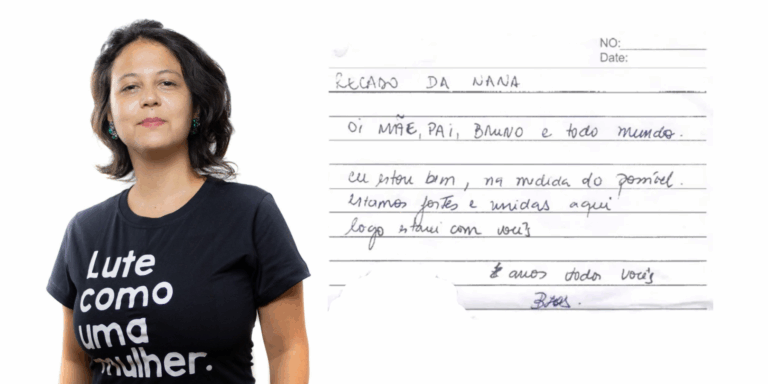 Lute
como
uma
mulher.
NO:
Date:
RECADO DA NANA
Oi MÃE, PAi, BRUNO e todo mundo.
eu estou bem, na medida do possível.
estamos fortes e unidas aqui
logo estarei com vocês
amos todos vocês
Bjos.